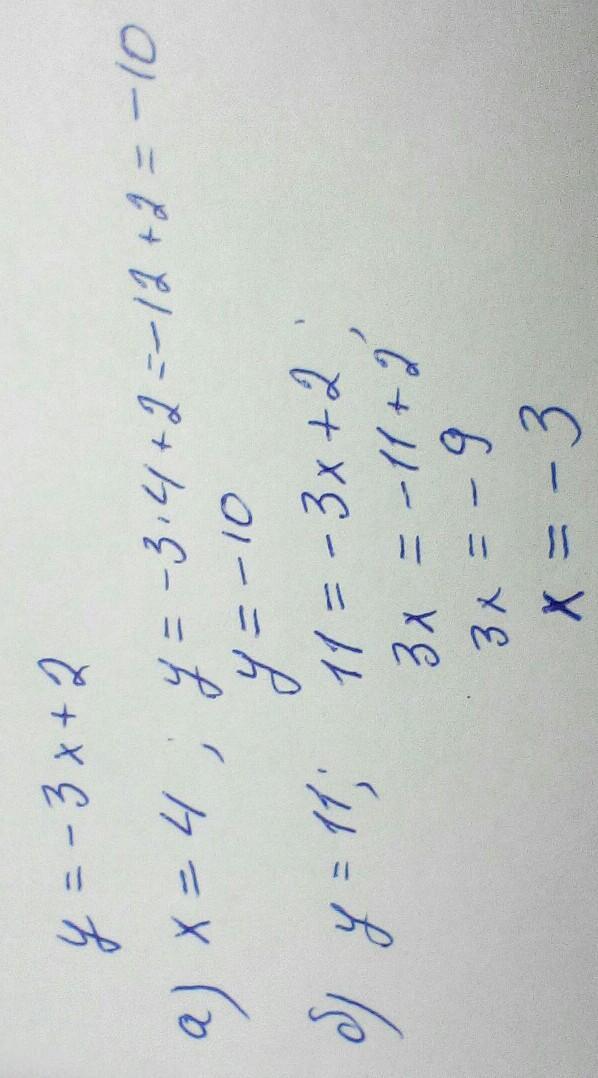 y = -3x + 2
а) x = 4 ; y = -3·4 + 2 = -12 + 2 = -10
y = -10
б) y = 11; 11 = -3x + 2;
3x = -11 + 2;
3x = -9
x = -3